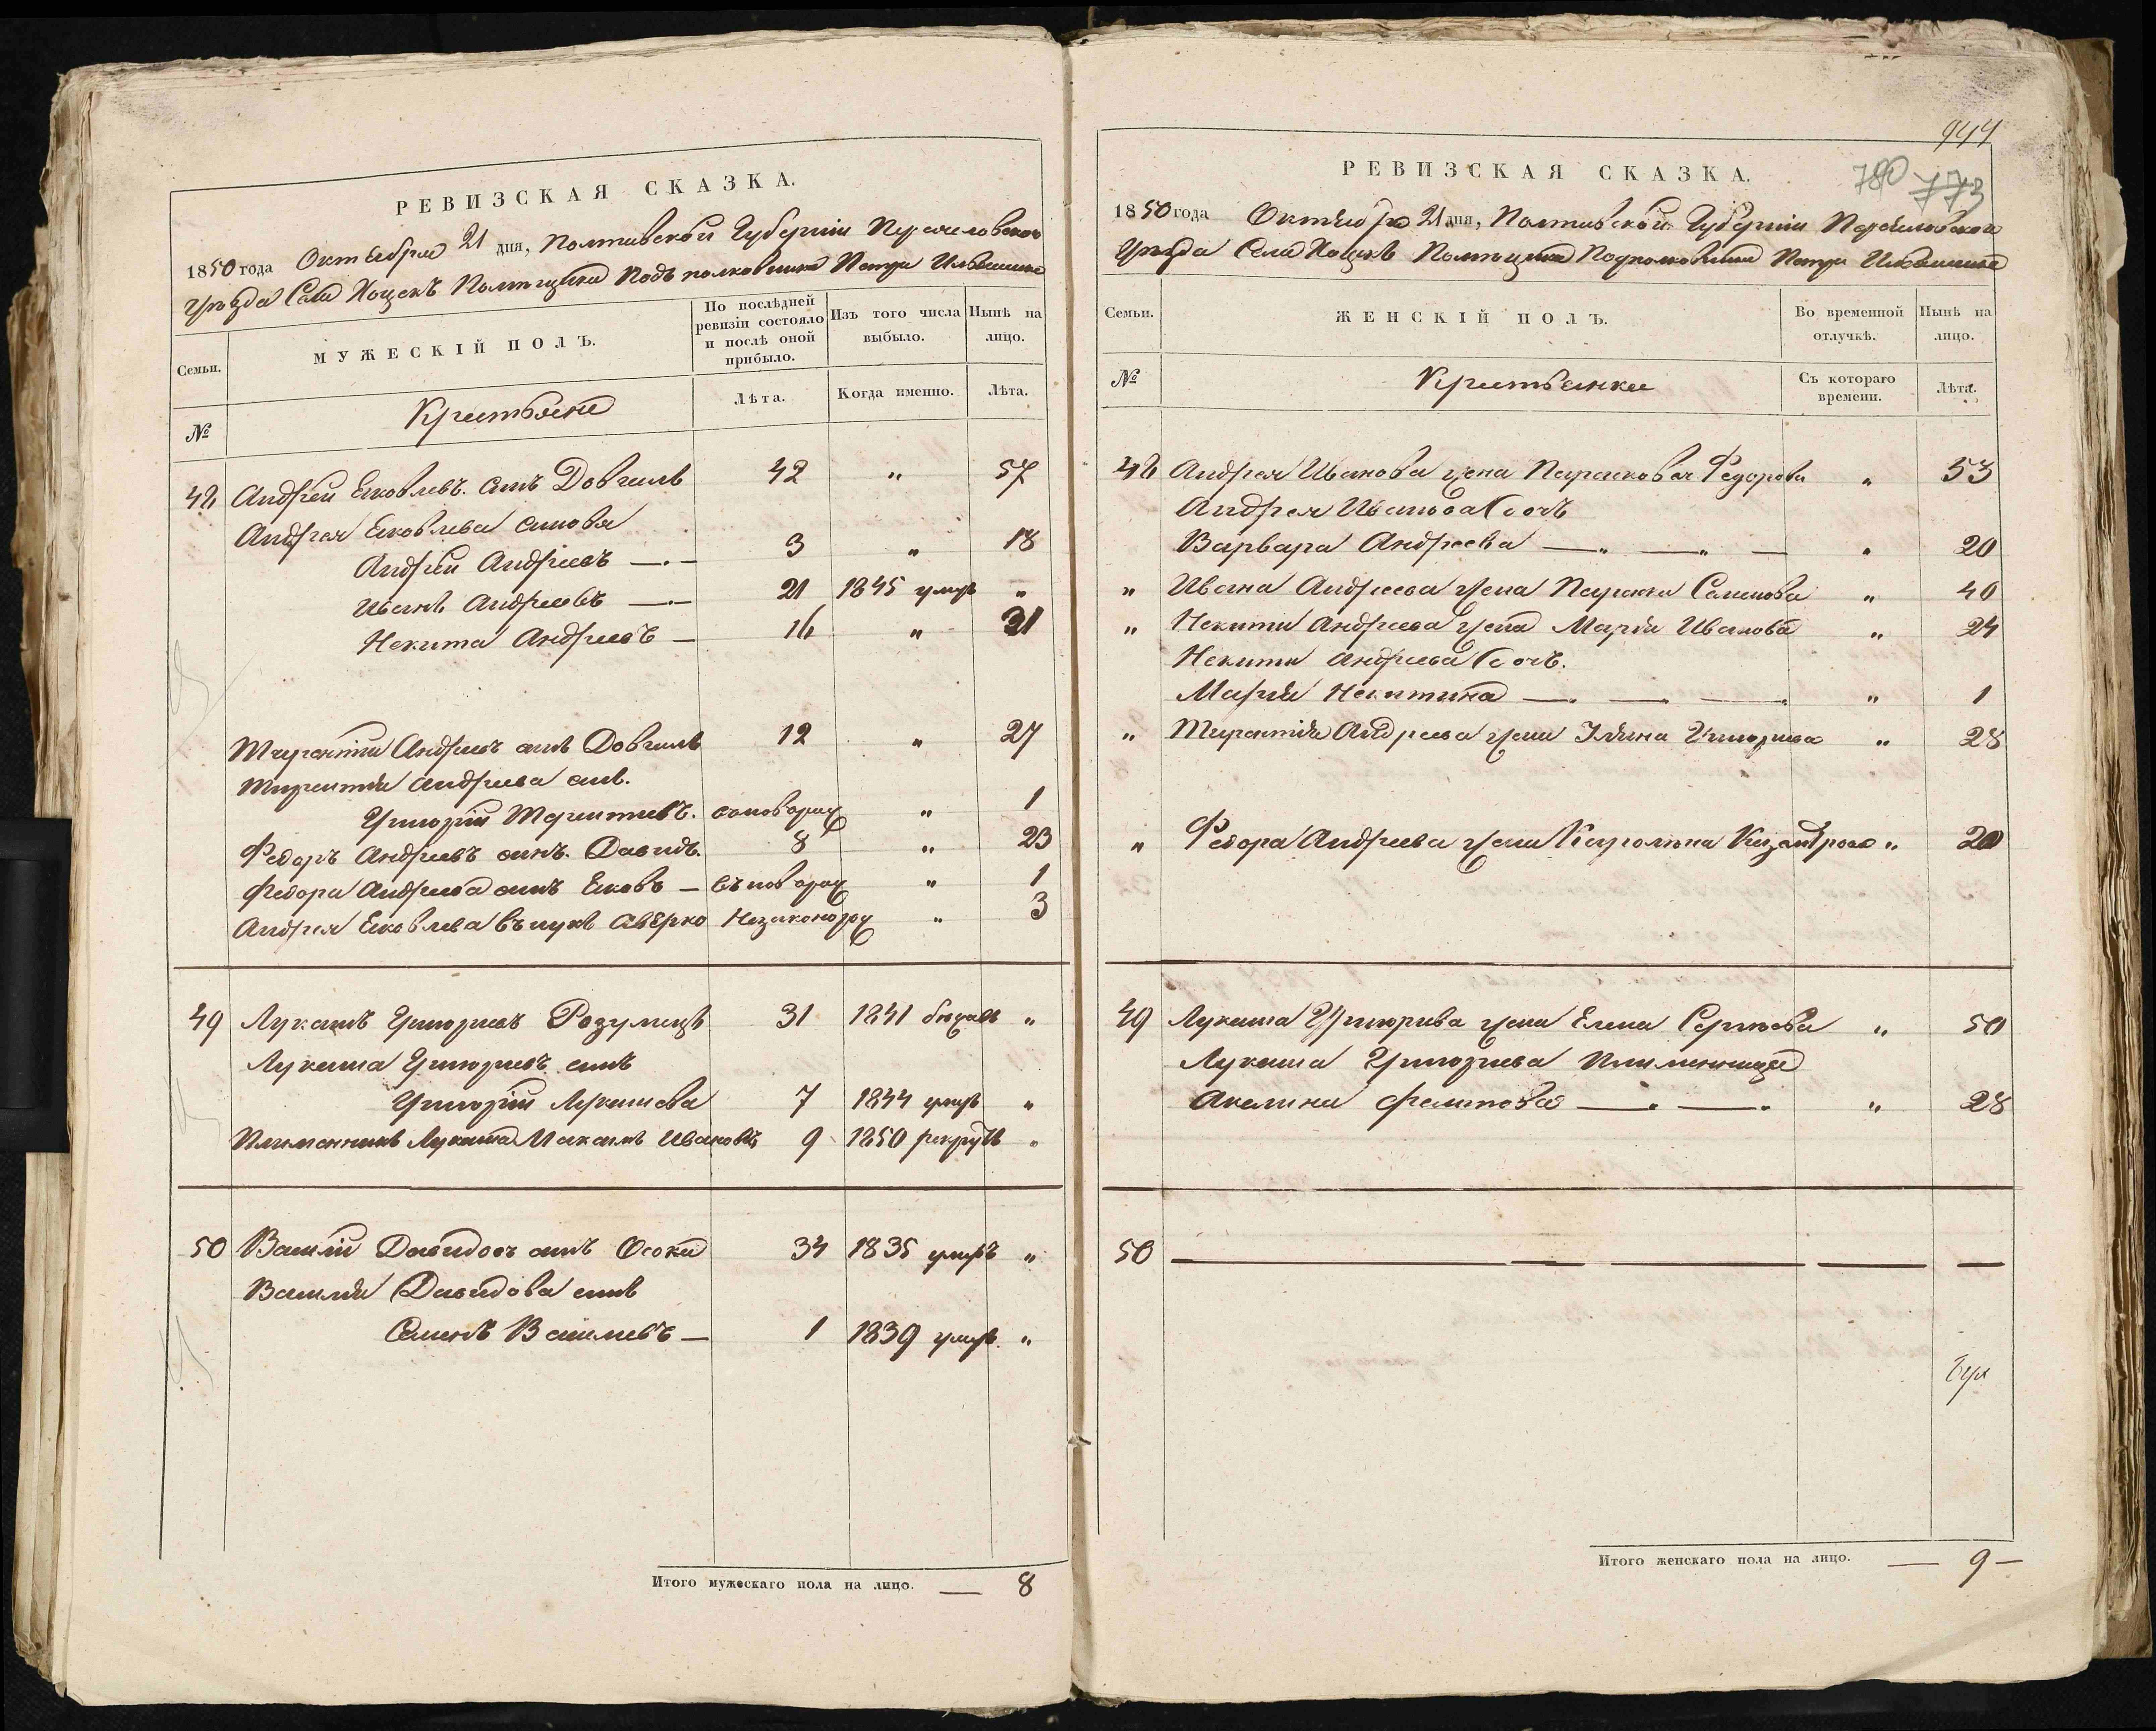 РЕВИЗСКАЯ СКАЗКА.
1850 года Октября 21 дня, Полтавской Губернии Переяловского
Уѣзда Села Хоцекъ Помѣщика Подполковника Петра
Семьи.
МУЖЕСКІЙ ПОЛЪ.
По послѣдней ревизіи состояло и послѣ оной прибыло.
Изъ того числа выбыло.
Нынѣ на лицо.
№
Крестьяне
Лѣта.
Когда именно.
Лѣта.
48 Андрей Яковлевъ сынъ Довгаль 42 " 57
Андрея Яковлева сыновья
Андрей Андреевъ — 3 " 18
Иванъ Андреевъ — 21 1845 умеръ "
Некита Андреевъ — 16 " 31
Терентій Андреевъ сынъ Довгаль 12 " 27
Терентія Андреева сынъ.
Григорій Терентиевъ. вновьрож " 1
Федоръ Андреевъ сынъ. 8 " 23
Федора Андреева сынъ Яковъ — вновьрож " 1
Андрея Яковлева внукъ Аверко Незаконорож " 3
49 Лукашъ Григориевъ Розумецъ 31 1841 бѣжалъ "
Лукаша Григориевъ сынъ
Григорій Лукашева 7 1844 умеръ "
Племенникъ Лукаша Максимъ Ивановъ 9 1850 рекрутъ "
50 Василій Давидовъ сынъ Осока 34 1835 умеръ "
Василия Давидова сынъ
Семенъ Василиевъ — 1 1839 умеръ "
Итого мужескаго пола на лицо. — 8
944
780 773
РЕВИЗСКАЯ СКАЗКА.
1850 года Октября 21 дня, Полтавской Губернии Переяловского
Уѣзда Села Хоцекъ Помѣщика Подполковника Петра
Семьи.
ЖЕНСКІЙ ПОЛЪ.
Во временной отлучкѣ.
Нынѣ на лицо.
№
Крестьянки
Съ котораго времени.
Лѣта.
48 Андрея Иванова жена Парасковья Федорова " 53
Андрея Иванова дочь
Варвара Андреева — " 20
" Ивана Андреева жена Параска Семенова " 40
" Некиты Андреева жена Мария Иванова " 24
Некиты Андреева дочь.
Мария Некитина — " 1
" Терентія Андреева жена Ирина Григориева " 28
" Федора Андреева жена " 20
49 Лукаша Григорива жена Елена Сергиева " 50
Лукаша Григориева Племенница
Акелина — " 28
50 —
Итого женскаго пола на лицо. — 9 —